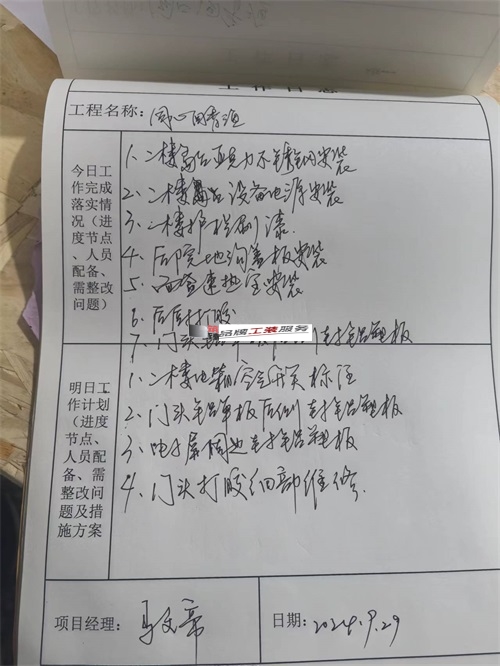 工作日志
工程名称：同心
今日工作完成落实情况（进度节点、人员配备、需整改问题）
1、二楼高台亚克力不锈钢安装
2、二楼舞台设备电源安装
3、二楼护栏刷漆.
4、后院地沟盖板安装
5、西餐速热宝安装
6、后厨打胶
品牌工装服务
7、门头 封铝塑板
明日工作计划（进度节点、人员配备、需整改问题及措施方案
1、二楼电箱空开开关标注
2、门头铝单板后侧封铝塑板
3、电子屏周边封铝塑板
4、门头打胶细部维修.
项目经理：
日期：2024.9.29